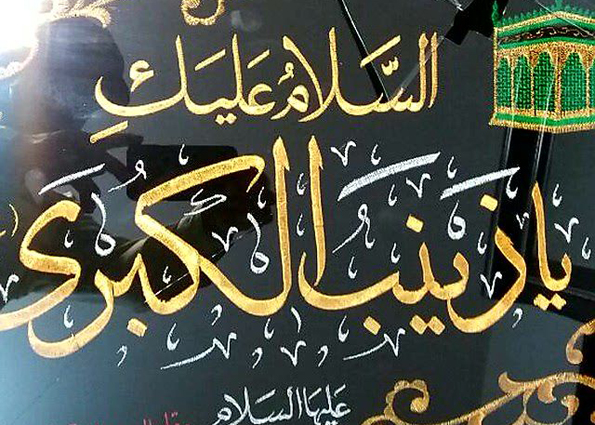 السَّلامُ عَلَيكِ
يا زَينَبَ الكُبرىٰ
عَلَيهَا السَلام